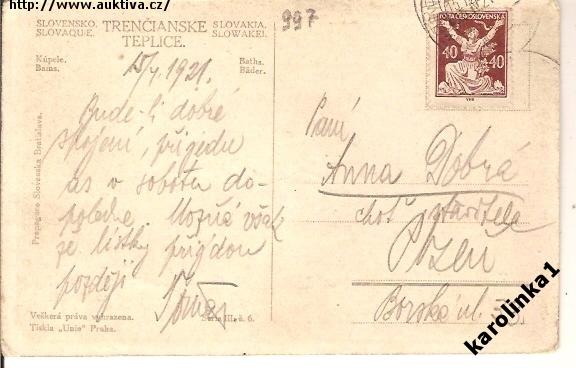 http://www.auktiva.cz/
997
SLOVENSKO. TRENČIANSKE SLOVAKIA.
SLOVAQUIE. TEPLICE. SLOWAKEI.
Kúpele. Baths.
Bains. Bäder.
15/4 1921.
Bude-li dobré
spojení, přijedu
as v sobotu do-
poledne. Možná však
že lístky přijdou
později
Propagace Slovenska Bratislava.
Veškerá práva vyhrazena. Serie III. č. 6.
Tiskla „Unie" Praha.
POŠTA ČESKOSLOVENSKÁ
40 40
Paní
Anna Dobrá
choť
Plzeň
Borská ul.
karolinka1